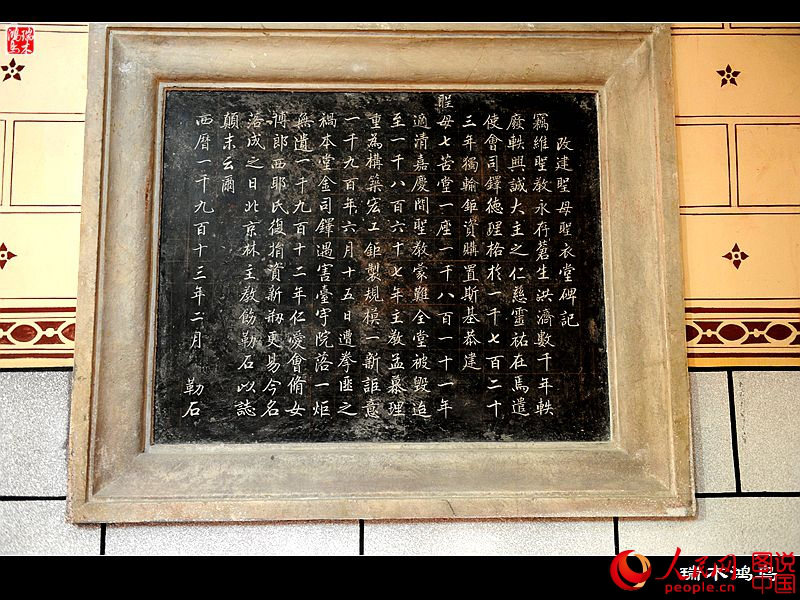 改建聖母聖衣堂碑記
竊維聖教永存蒼生洪濟數千年軼
廢軼興誠大主之仁慈靈祐在焉遣
使會司鐸德理格於一千七百二十
三年獨輸鉅資購置斯基恭建
聖母七苦堂一座一千八百一十一年
適清嘉慶間聖教蒙難全堂被毀迨
至一千八百六十七年主教孟慕理
重為構築宏工鉅製規模一新詎意
一千九百年六月十五日遭拳匪之
禍本堂金司鐸遇害臺宇院落一炬
無遺一千九百十二年仁愛會脩女
博郎西耶氏復捐資新刱更易今名
落成之日北京林主教飭勒石以誌
顛末云爾
西曆一千九百十三年二月 勒石
瑞木鴻鳥
人民网
图说中国
people